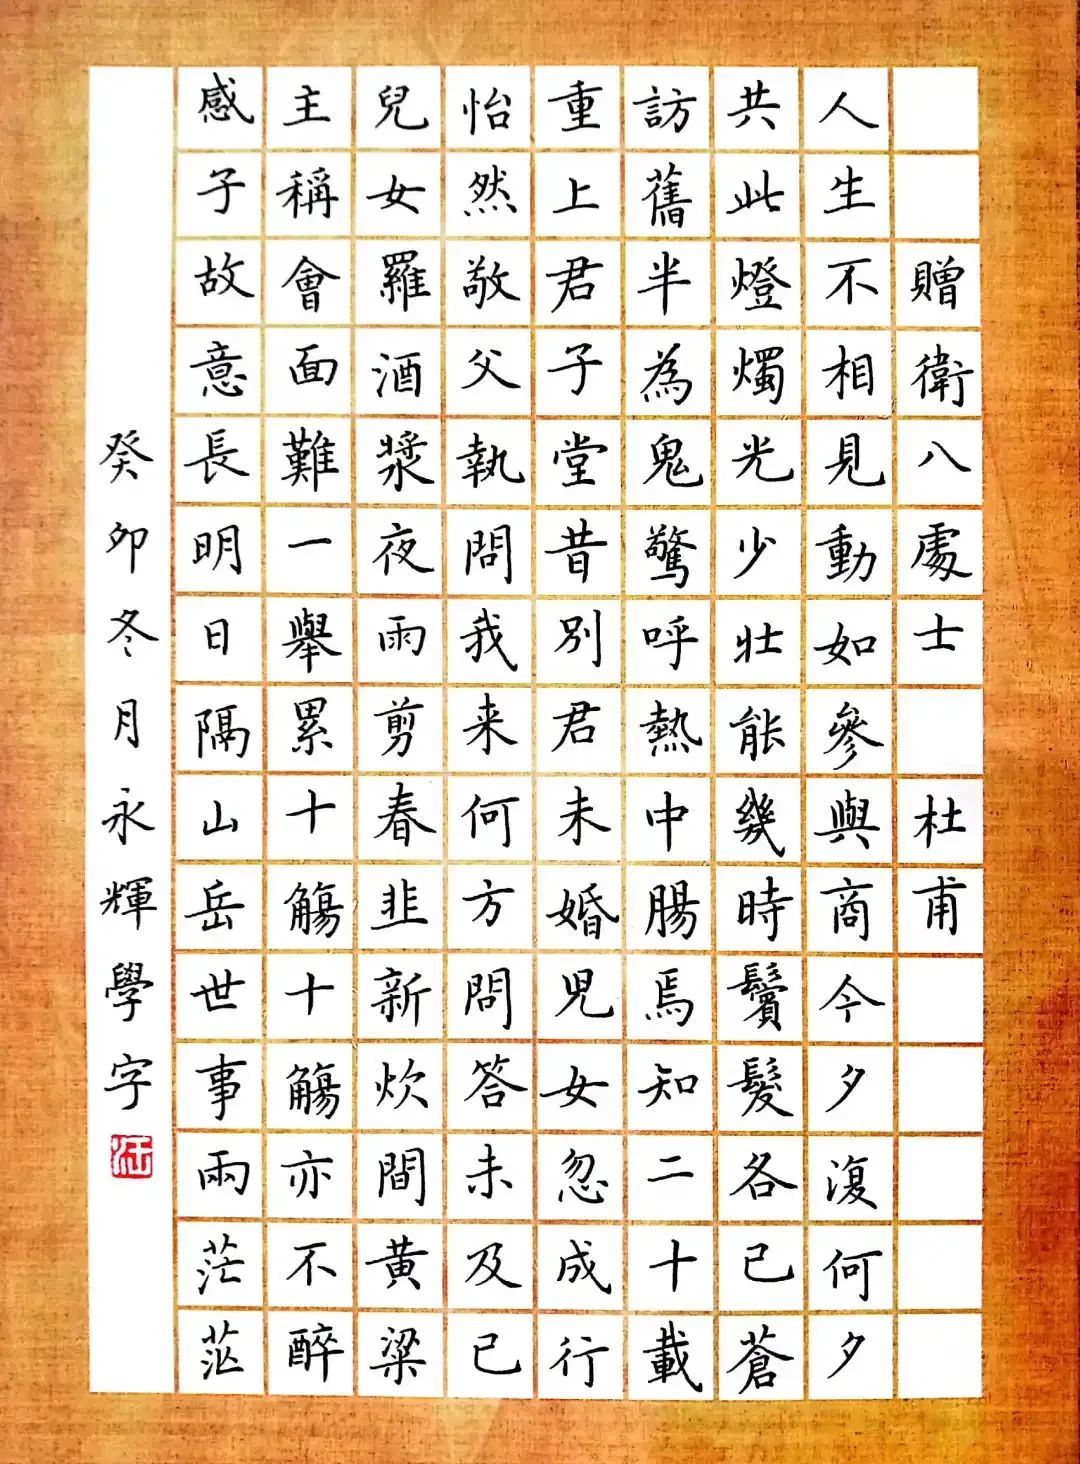 贈衛八處士 杜甫
人生不相見動如參與商今夕復何夕
共此燈燭光少壯能幾時鬢髮各已蒼
訪舊半為鬼驚呼熱中腸焉知二十載
重上君子堂昔別君未婚児女忽成行
怡然敬父執問我来何方問答未及已
兒女羅酒漿夜雨剪春韭新炊間黃粱
主稱會面難一舉累十觴十觴亦不醉
感子故意長明日隔山岳世事兩茫茫
癸卯冬月永輝學字